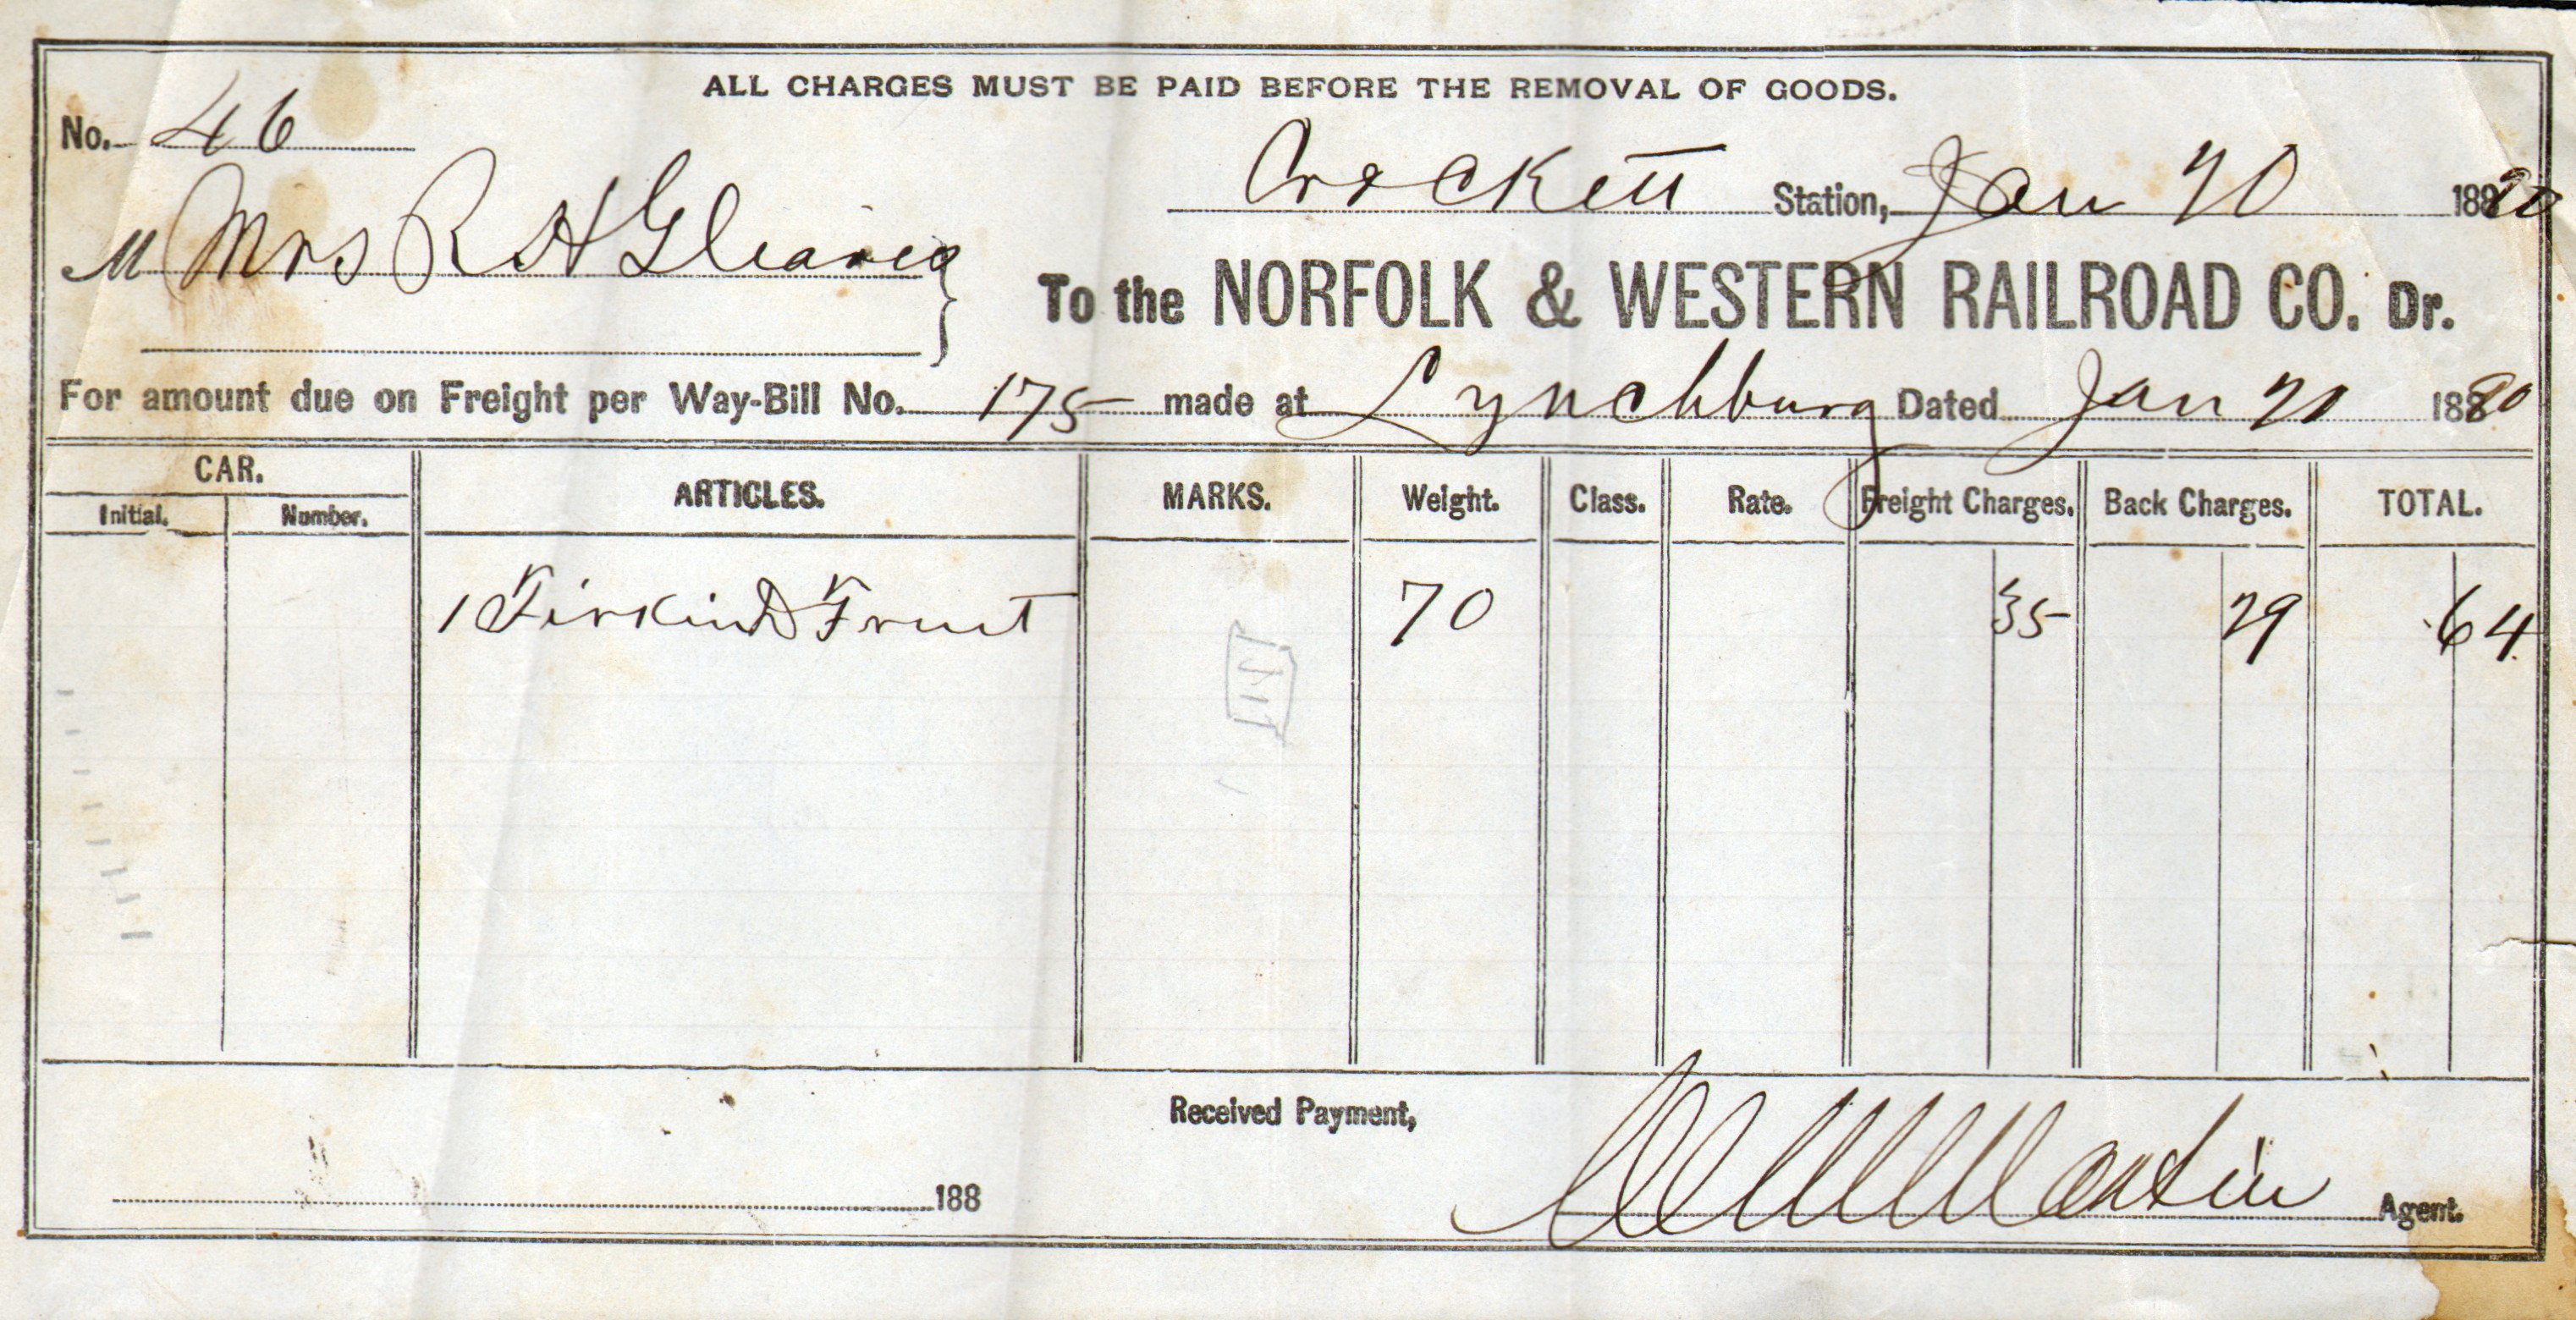 ALL CHARGES MUST BE PAID BEFORE THE REMOVAL OF GOODS.
No. 46
Crockett Station, Jan 20 1890
M Mrs R H Gleaves
To the NORFOLK & WESTERN RAILROAD CO. Dr.
For amount due on Freight per Way-Bill No. 175 made at Lynchburg Dated Jan 1890
CAR. ARTICLES. MARKS. Weight. Class. Rate. Freight Charges. Back Charges. TOTAL.
Initial. Number.
1 Firkin D Fruit 70 35 29 64
Received Payment,
188 Martin Agent.